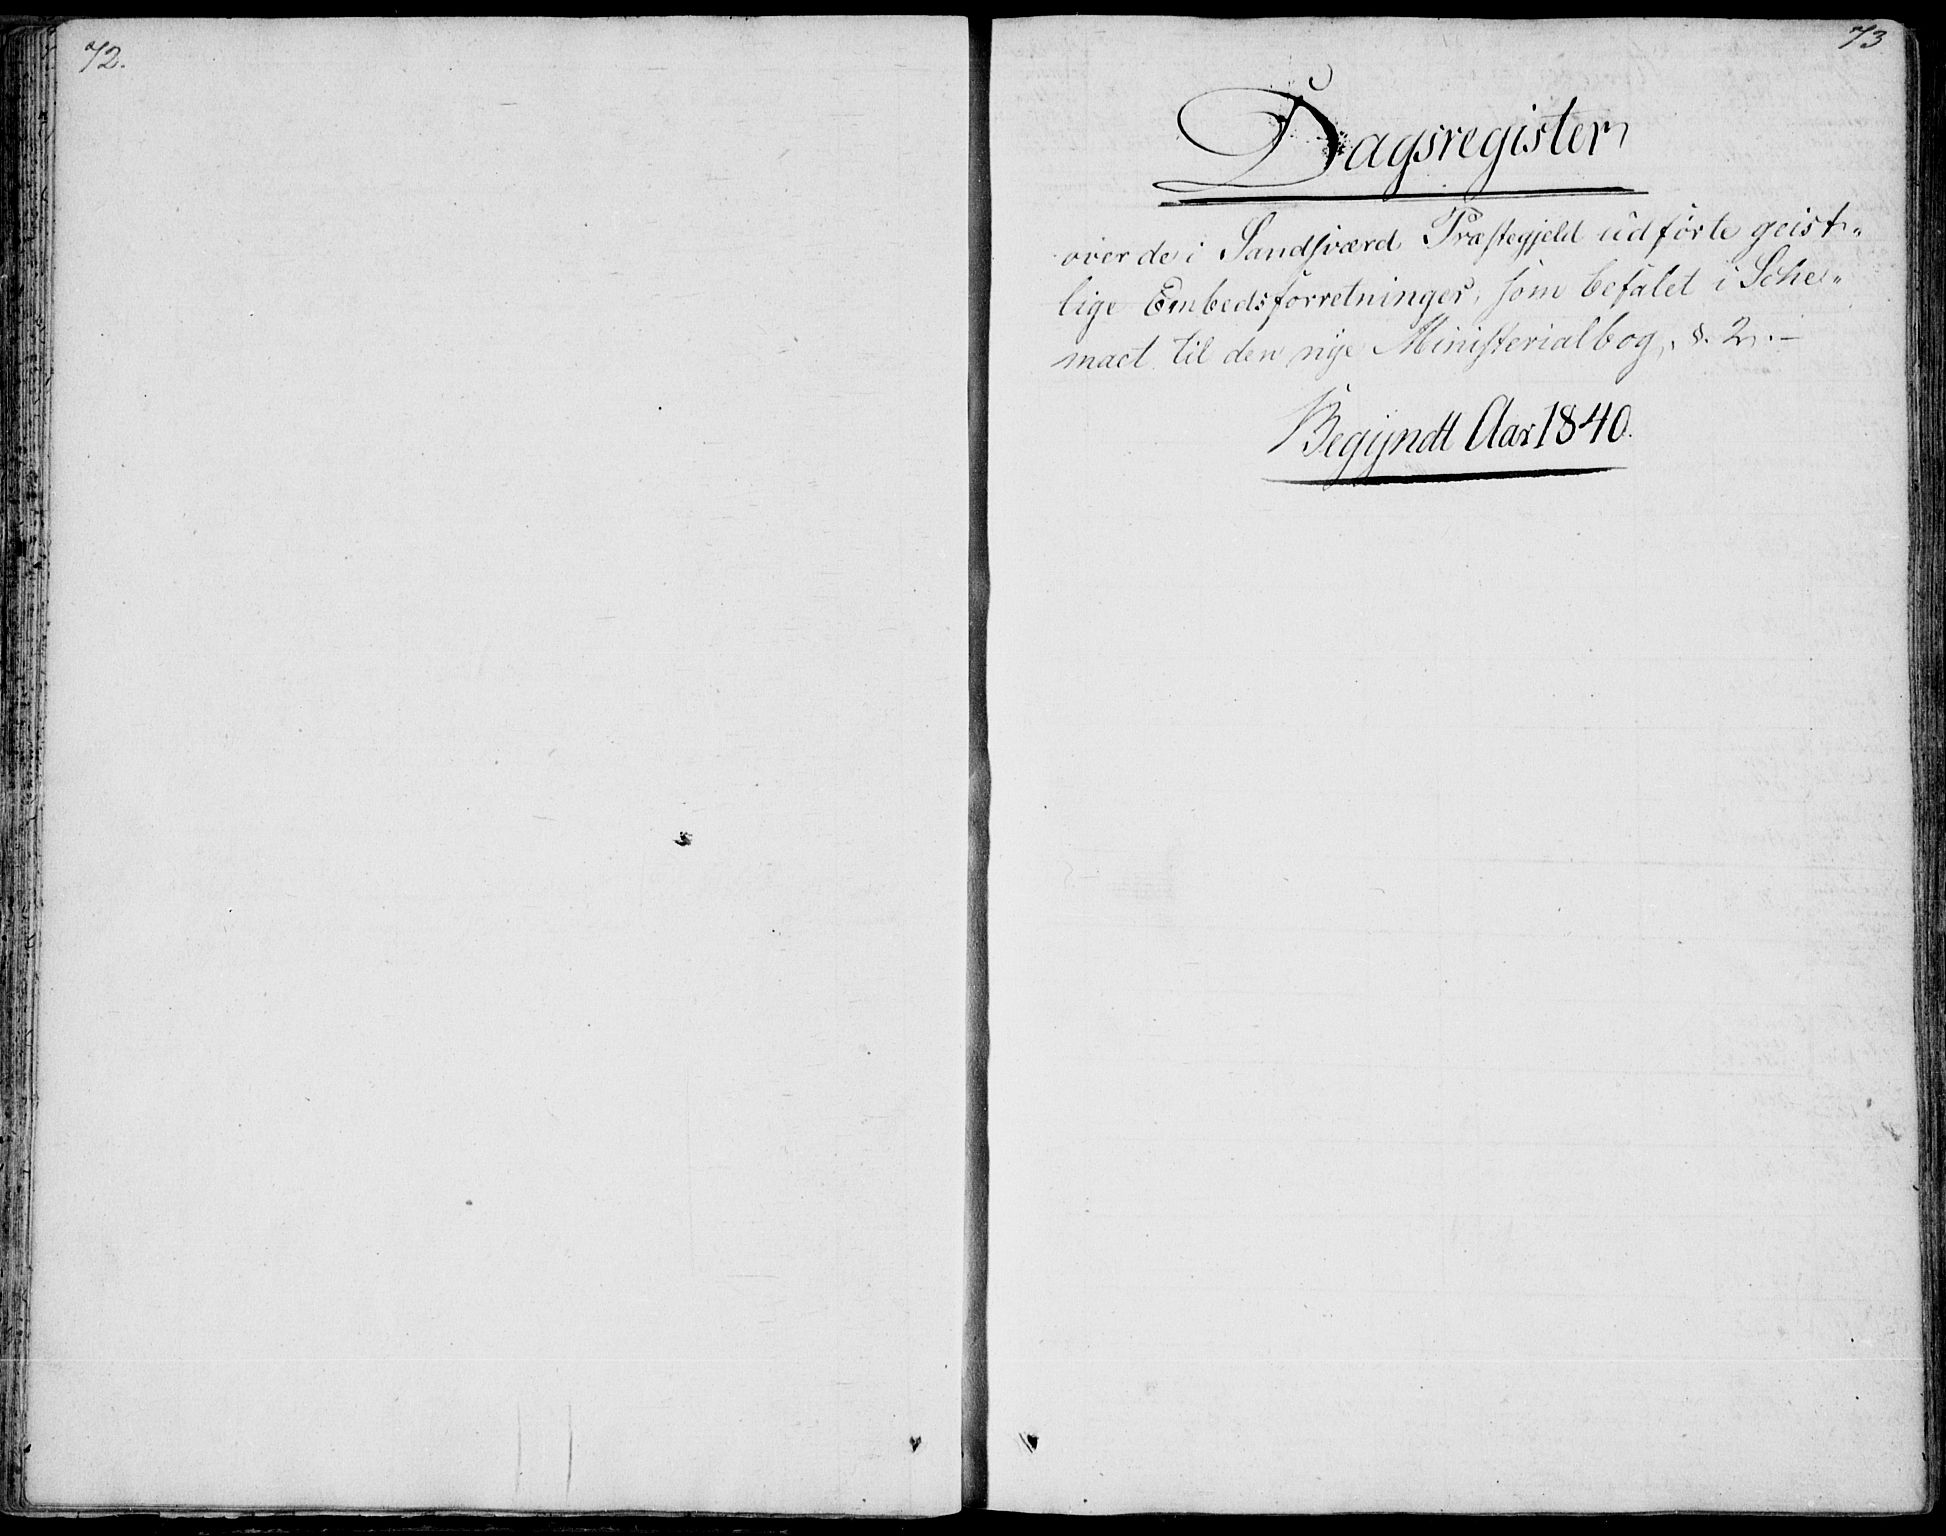 72.
73
Dagsregister
over de i Sandsværd Præstegjeld udførte geist-
lige Embedsforretninger, som befalet i Sche-
maet til den nye Ministerialbog, §. 2. -
Begyndt Aar 1840.